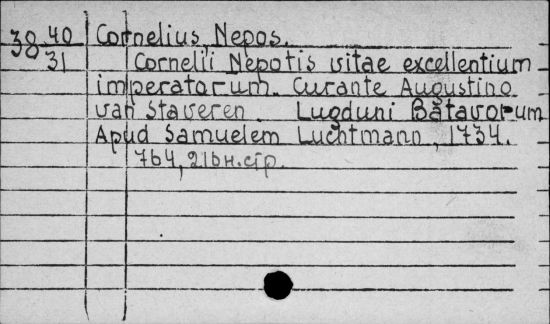 38 40 Cornelius, Nepos.
31 Cornelii Nepotis vitae excellentium
imperatorum. Curante Augustino
van Staveren. Lugduni Batavorum
Apud Samuelem Luchtmann, 1734.
764, 216н.стр.